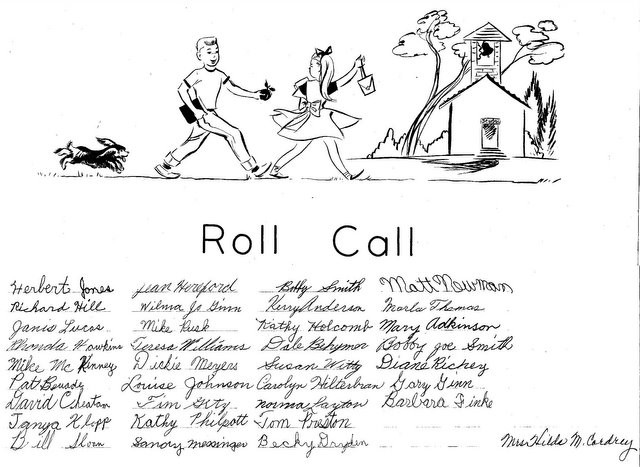 Roll Call
Herbert Jones Jean Hereford Bobby Smith Matt Newman
Richard Hill Wilma Jo Ginn Kerry Anderson Marla Thomas
Janis Lucas Mike Rusk Kathy Holcomb Mary Adkinson
Rhonda Hawkins Teresa Williams Dale Behymer Bobby Joe Smith
Mike Mc Kinney Dickie Meyers Susan Witty Diane Richey
Pat Carolyn Hilterbran Gary Ginn
Louise Johnson
David Cheatam Tim Norma Layton Barbara Finke
Tanya Klopp Kathy Philpott Tom Preston
Bill Sandy Messinger Becky Dryden Mrs. Hilda M. Cordrey